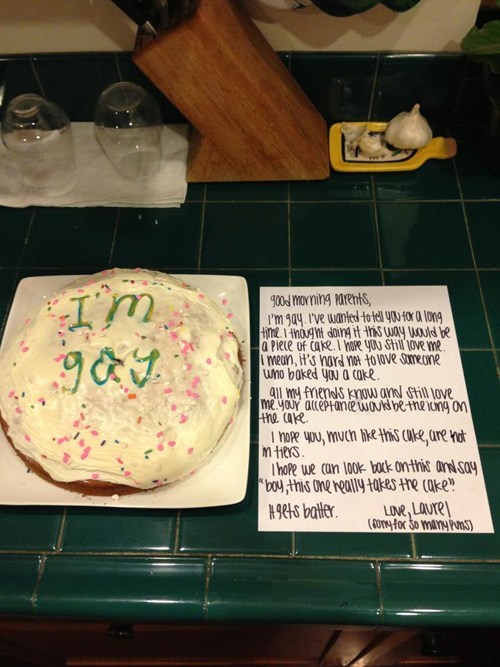 I'm
gay
good morning parents,
I'm gay. I've wanted to tell you for a long
time. I thought doing it this way would be
a piece of cake. I hope you still love me.
I mean, it's hard not to love someone
who baked you a cake.
all my friends know and still love
me. your acceptance would be the icing on
the cake.
I hope you, much like this cake, are not
in tiers.
I hope we can look back on this and say
"boy, this one really takes the cake".
It gets batter.
Love, Laurel
(sorry for so many puns)